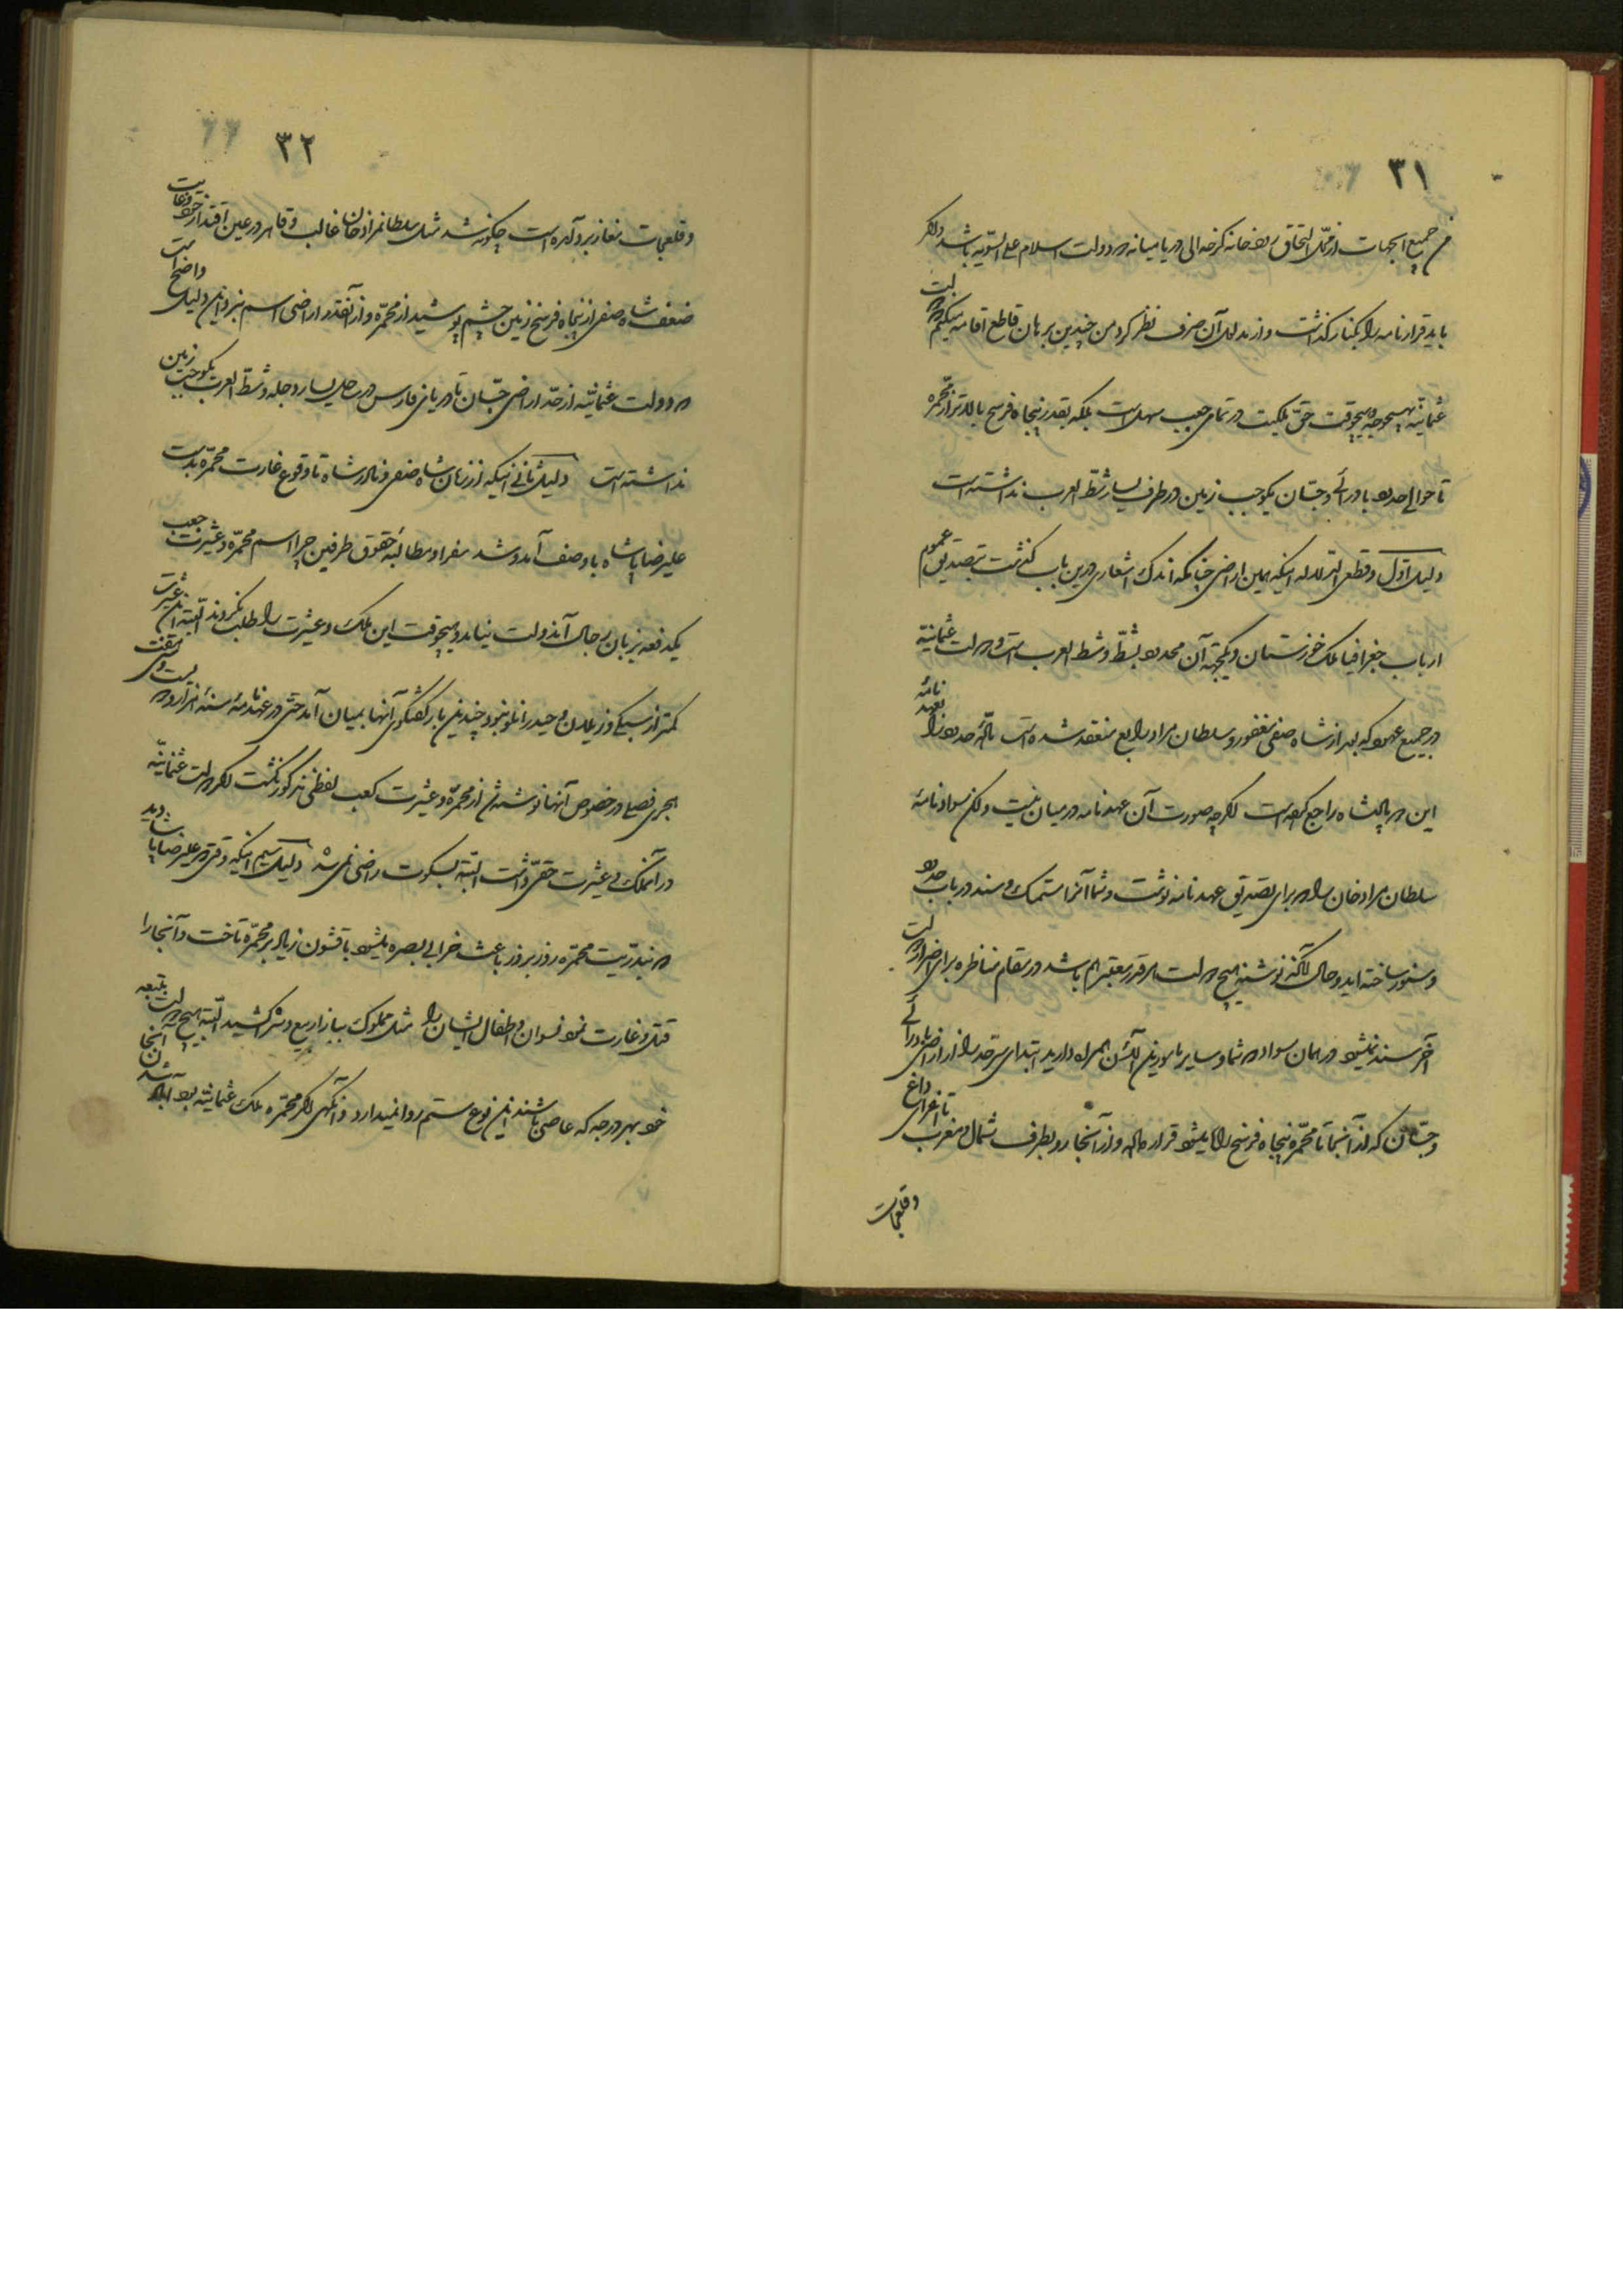 ۳۱
من جمیع الجهات از محل التحاق رودخانه کرخه الی دریا میانه دو دولت اسلام علی السویه باشد و اگر
باید قرارنامه را بکنار گذاشت و از مدلول آن صرف نظر کرد من چندین برهان قاطع اقامه میکنم که دولت
عثمانیه بهیچوجه و هیچوقت حق ملکیت در تمامی جعب سهل است بلکه بقدر پنجاه فرسخ بالاتر از محمره
تا حوالی حدود بادرائی و جسان یکوجب زمین در طرف یسار شط العرب نداشته است
دلیل اول و قطعی الدلاله اینکه همین اراضی چنانکه اندک اشعاری درین باب گذشت بتصدیق عموم
ارباب جغرافیا ملک خوزستان و یکجهة آن محدود بشط و شط العرب است و دولت عثمانیه
در جمیع عهود که بعد از شاه صفی مغفور و سلطان مراد رابع منعقد شده است تماما حدود را بعهدنامه
این دو پادشاه راجع کرده است اگرچه صورت آن عهدنامه در میان نیست ولکن سواد نامهٔ
سلطان مراد خان را که برای تصدیق عهدنامه نوشت و شما آنرا مستمسک و سند در باب حدود
و سنور ساخته اید و حال آنکه نوشته هیچ دولت هر قدر معتبر هم باشد در مقام مناظره برای اضرار دولت
آخر سند نمیشود در همان سواد که شما و سایر مامورین الآن همراه دارید ابتدای سرحد را از اراضی بادرائی
و جسان که از آنجا تا محمره پنجاه فرسخ راه میشود قرار داده و از آنجا رو بطرف شمال و مغرب تا آغری داغ
و قلعجات
۳۲
و قلعجات مغازبرد آمده است چگونه شد مثل سلطانمراد خان غالب و قاهر در عین اقتدار خود و غایت
ضعف شاه صفی از پنجاه فرسخ زمین چشم پوشید از محمره و از آنقدر اراضی اسم نبرد این دلیل واضح است
که دولت عثمانیه از حد اراضی جسان تا دریای فارس در ساحل یسار دجله و شط العرب یکوجب زمین
نداشته است دلیل ثانی اینکه از زمان شاه صفی و نادر شاه تا وقوع غارت محمره بدست
علیرضا پاشا با وصف آمد و شد سفرا و مطالبهٔ حقوق طرفین چرا اسم محمره و عشیرت جعب
یکدفعه بزبان رجال آندولت نیامد و هیچوقت این ملک و عشیرت را طلب نکردند البته این عشیرت
کمتر از سبیکی و زیلان و حیدرانلو نبود چندین بار گفتگوی آنها بمیان آمد حتی در عهدنامهٔ سنهٔ هزار و دویست و سی و هفت
هجری فصلی در خصوص آنها نوشته شد از محمره و عشیرت کعب لفظی مذکور نگشت اگر دولت عثمانیه
در آنملک و عشیرت حقی داشت البته بسکوت راضی نمی شد دلیل سیم اینکه وقتی که علیرضا پاشا دید
که بندریت محمره روز بروز باعث خرابی بصره میشود با قشون زیاد بر محمره تاخت و آنجا را
قتل و غارت نمود نسوان و اطفال ایشان را مثل مملوک ببازار بیع و شری کشید البته هیچ دولت بتبعه
خود بهر درجه که عاصی باشند این نوع ستم روا نمیدارد وانگهی اگر محمره ملک عثمانیه بود آباد شدن آنجا